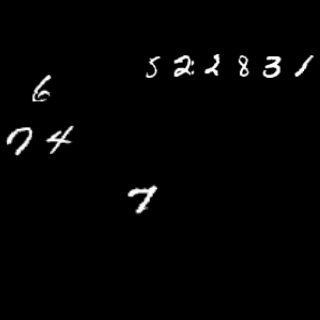 522831
6
74
7